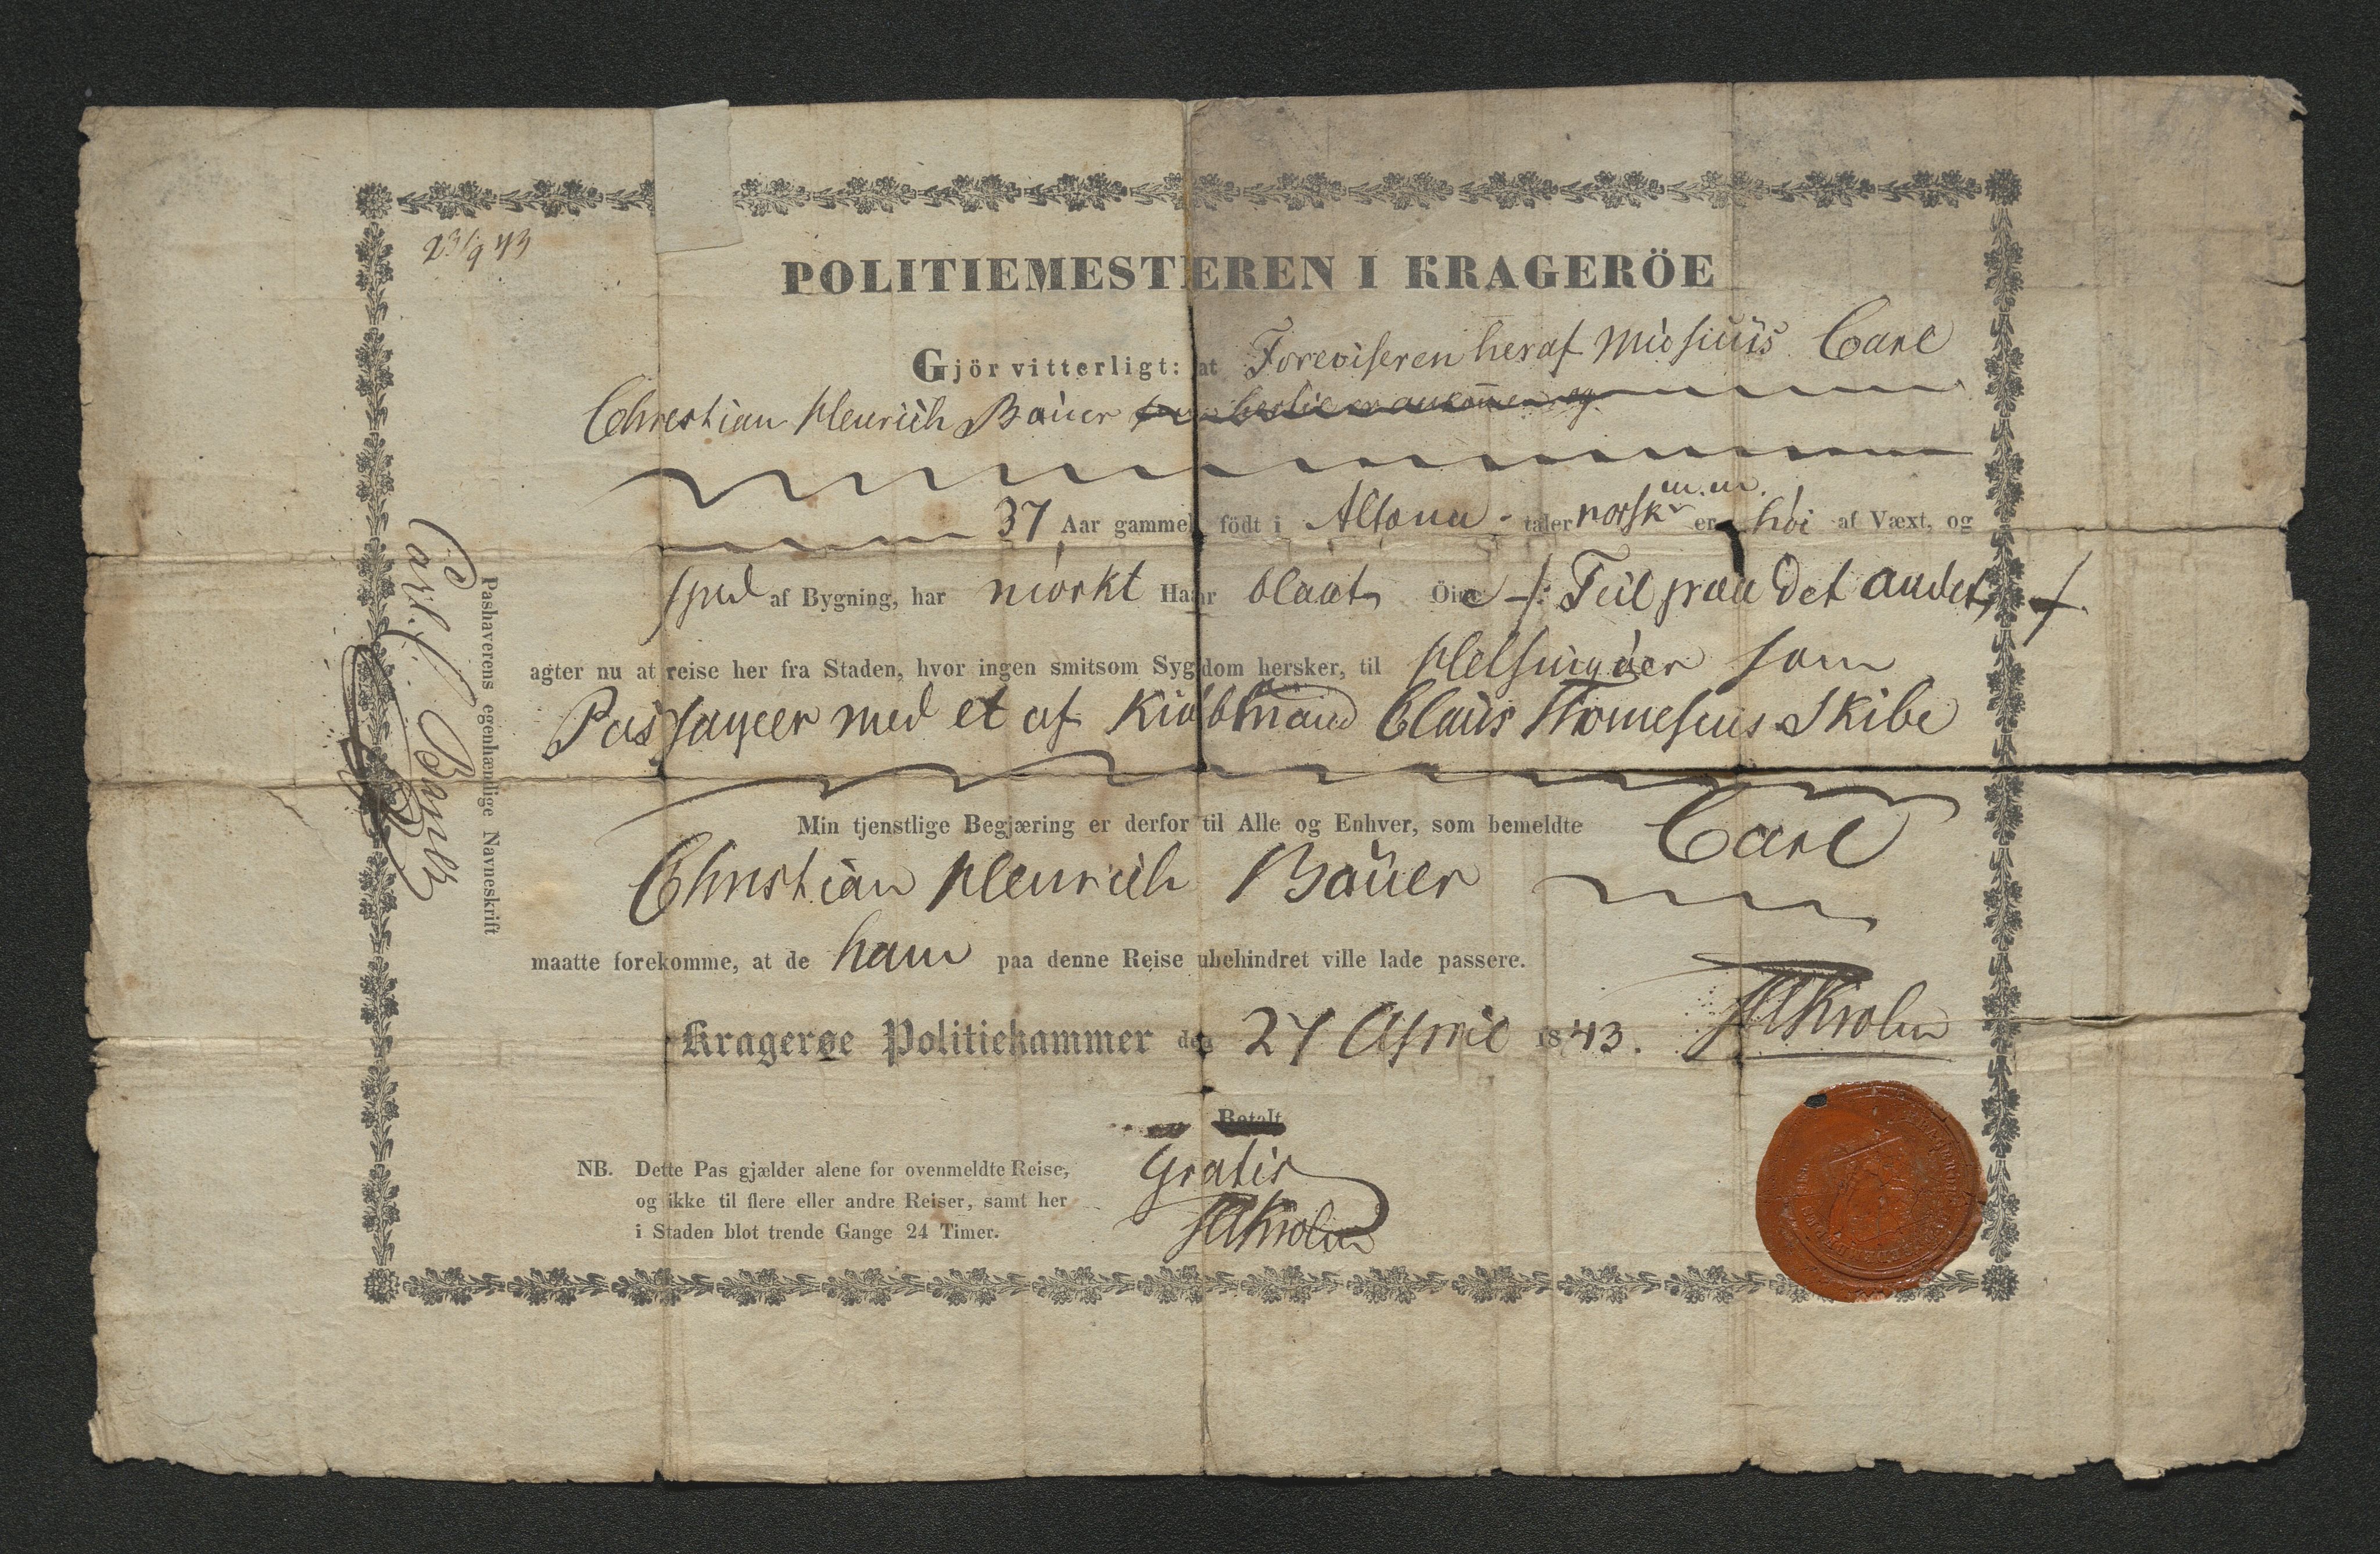 23/9 43
POLITIEMESTEREN I KRAGERÖE
Gjör vitterligt: at Foreviseren heraf Musicus Carl
Christian Henrich Bauer
m.m.
37 Aar gammel, födt i Altona - taler norsk er höi af Væxt, og
sped af Bygning, har mörkt Haar blaat Öine /: Feil paa det andet /
agter nu at reise her fra Staden, hvor ingen smitsom Sygdom hersker, til Helsingöer som
Passageer med et af Kiöbmand Claus Thomesens Skibe
Min tjenstlige Begjæring er derfor til Alle og Enhver, som bemeldte Carl
Christian Henrich Bauer
maatte forekomme, at de ham paa denne Reise ubehindret ville lade passere.
Kragerøe Politiekammer den 27 April 1843.
Betalt
Gratis
NB. Dette Pas gjælder alene for ovenmeldte Reise,
og ikke til flere eller andre Reiser, samt her
i Staden blot trende Gange 24 Timer.
Pashaverens egenhændige Navneskrift
Carl